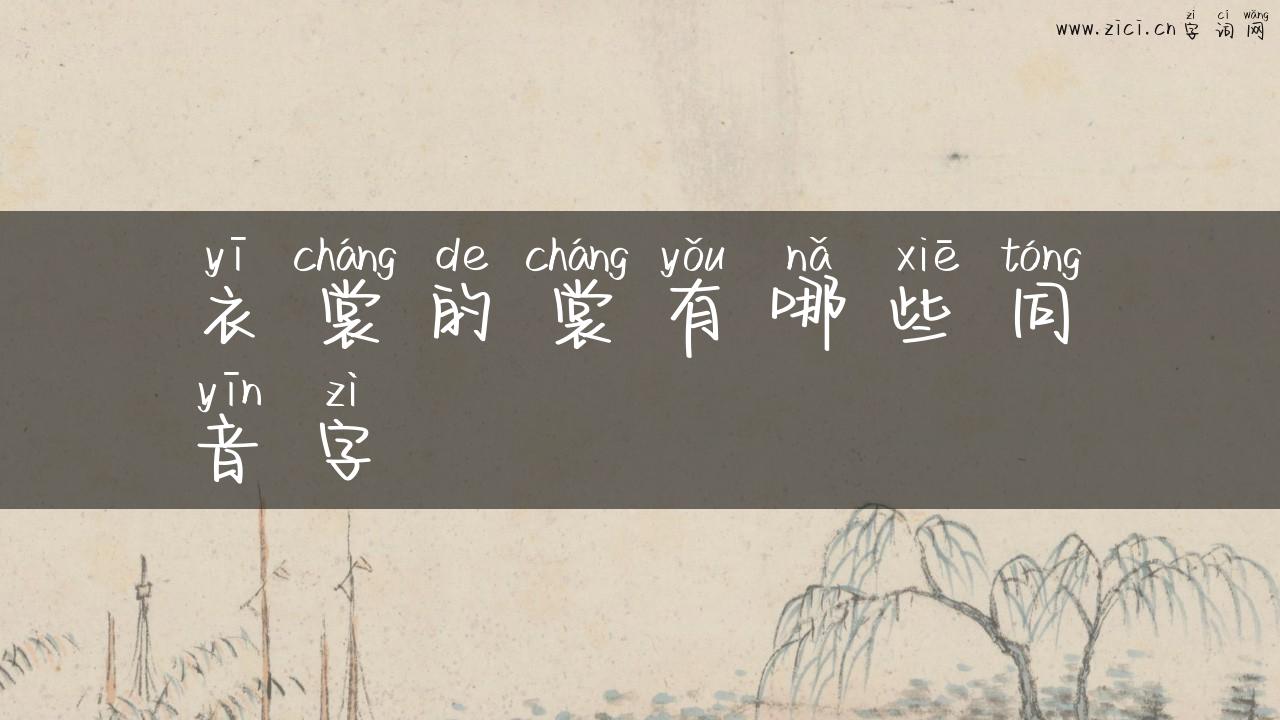 zì cí wǎng
www.zici.cn 字词网
yī cháng de cháng yǒu nǎ xiē tóng
衣裳的裳有哪些同
yīn zì
音字